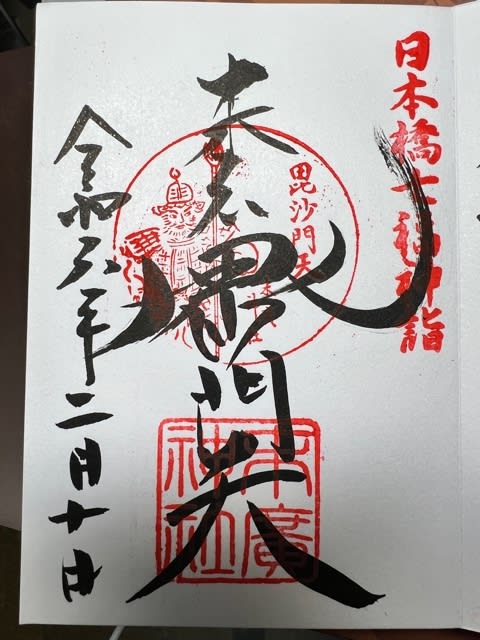 日本橋七福神詣
毘沙門天
毘沙門天
末廣
神社
令和六年二月十日